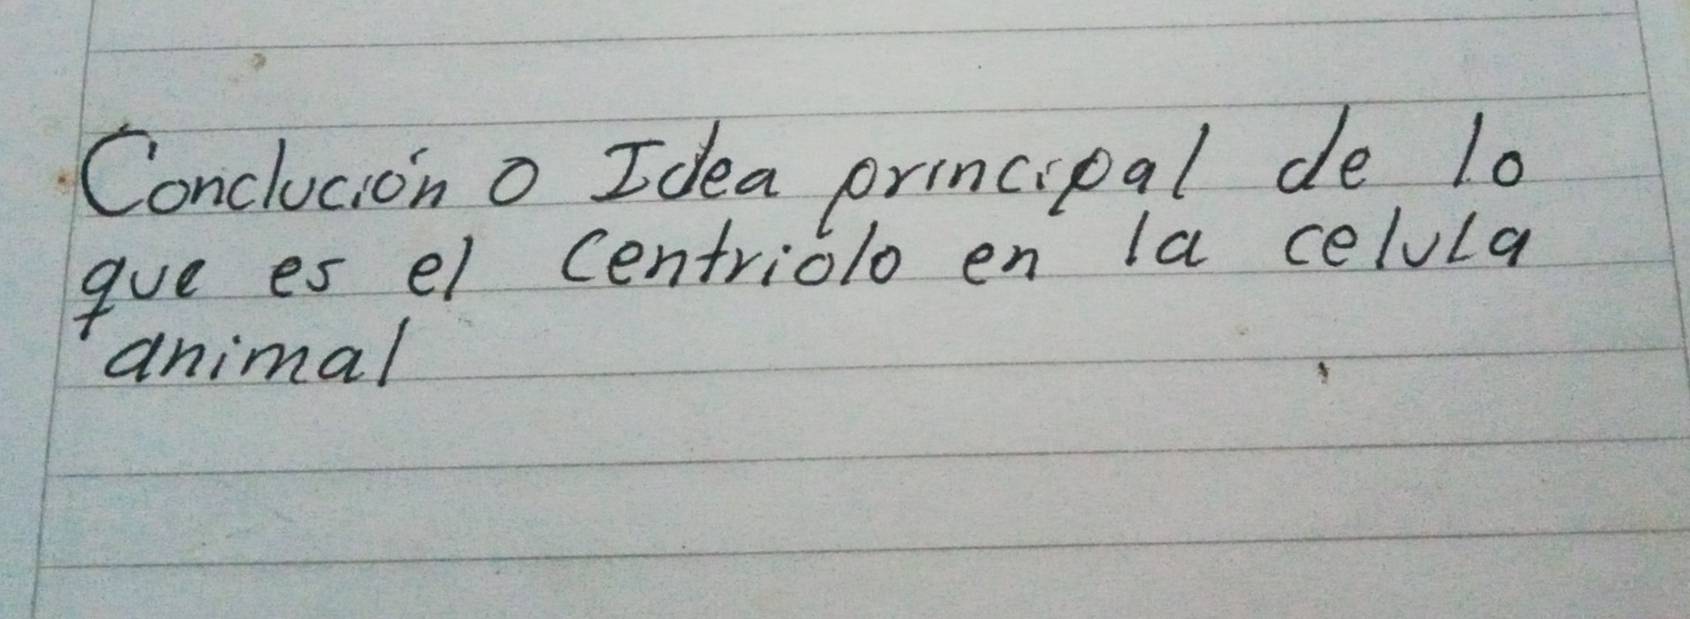 Conclución o Idea principal de lo
que es el centriolo en la celula
animal